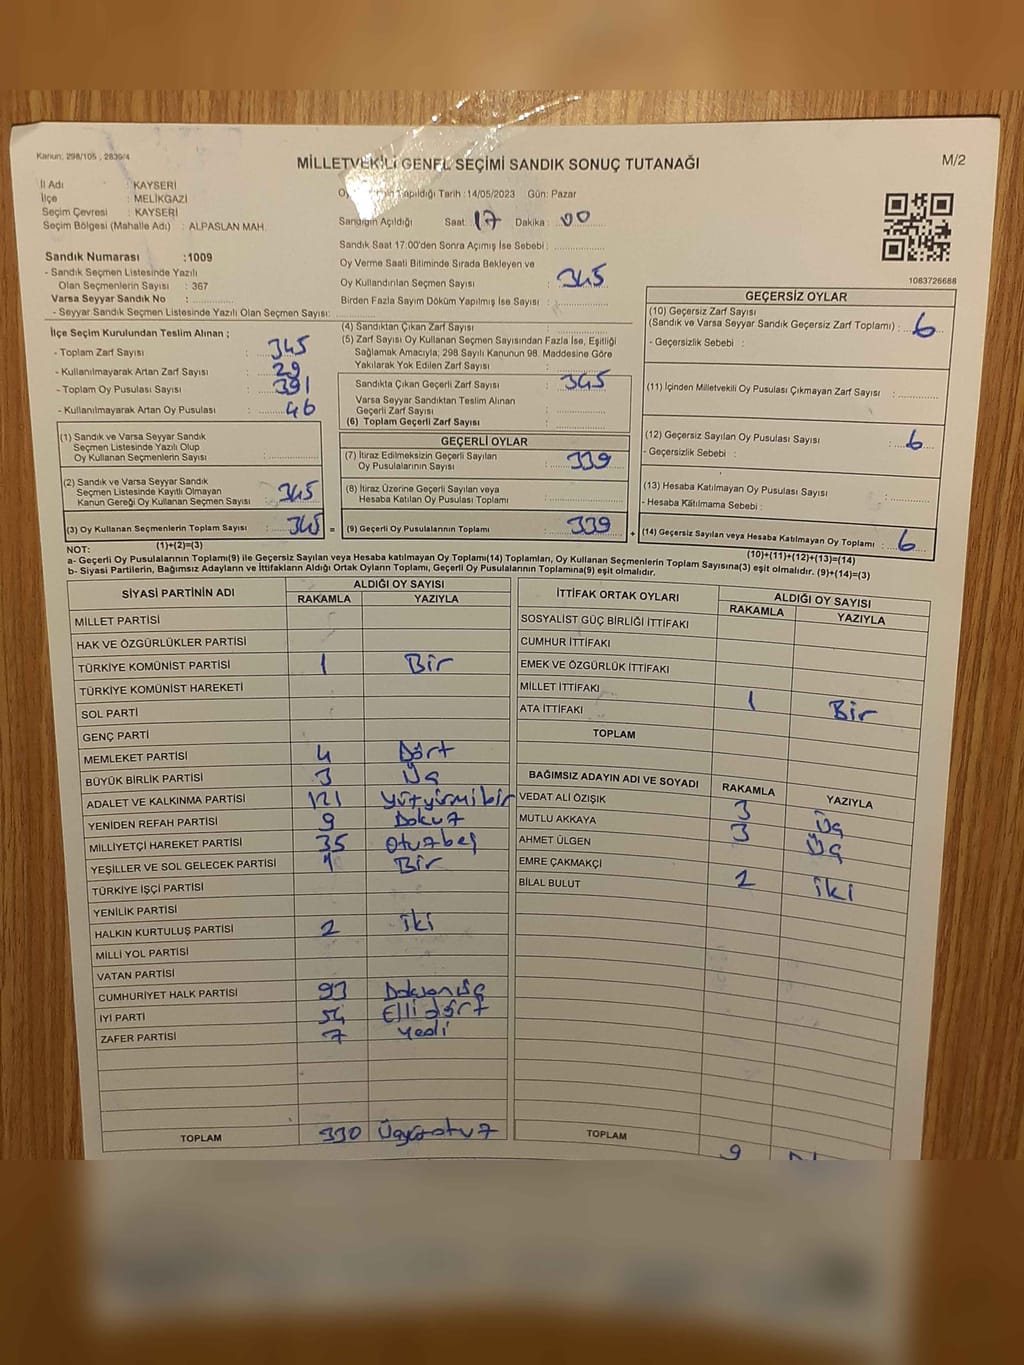 Kanun: 298/105 , 2839/4
MİLLETVEKİLİ GENEL SEÇİMİ SANDIK SONUÇ TUTANAĞI
M/2
İl Adı : KAYSERİ
İlçe : MELİKGAZİ
Seçim Çevresi : KAYSERİ
Seçim Bölgesi (Mahalle Adı) : ALPASLAN MAH.
Sandık Numarası :1009
- Sandık Seçmen Listesinde Yazılı
Olan Seçmenlerin Sayısı : 367
Varsa Seyyar Sandık No :
- Seyyar Sandık Seçmen Listesinde Yazılı Olan Seçmen Sayısı:
Yapıldığı Tarih :14/05/2023 Gün: Pazar
Sandığın Açıldığı Saat: 17 Dakika : 00
Sandık Saat 17:00'den Sonra Açımış İse Sebebi :
Oy Verme Saati Bitiminde Sırada Bekleyen ve
Oy Kullandırılan Seçmen Sayısı : 345
Birden Fazla Sayım Döküm Yapılmış İse Sayısı :
1083726688
İlçe Seçim Kurulundan Teslim Alınan ;
- Toplam Zarf Sayısı : 345
- Kullanılmayarak Artan Zarf Sayısı : 29
- Toplam Oy Pusulası Sayısı : 391
- Kullanılmayarak Artan Oy Pusulası : 46
(1) Sandık ve Varsa Seyyar Sandık
Seçmen Listesinde Yazılı Olup
Oy Kullanan Seçmenlerin Sayısı :
(2) Sandık ve Varsa Seyyar Sandık
Seçmen Listesinde Kayıtlı Olmayan
Kanun Gereği Oy Kullanan Seçmen Sayısı : 345
(3) Oy Kullanan Seçmenlerin Toplam Sayısı : 345 =
(1)+(2)=(3)
(4) Sandıktan Çıkan Zarf Sayısı :
(5) Zarf Sayısı Oy Kullanan Seçmen Sayısından Fazla İse, Eşitliği
Sağlamak Amacıyla, 298 Sayılı Kanunun 98. Maddesine Göre
Yakılarak Yok Edilen Zarf Sayısı :
Sandıkta Çıkan Geçerli Zarf Sayısı : 345
Varsa Seyyar Sandıktan Teslim Alınan
Geçerli Zarf Sayısı :
(6) Toplam Geçerli Zarf Sayısı :
GEÇERLİ OYLAR
(7) İtiraz Edilmeksizin Geçerli Sayılan
Oy Pusulalarının Sayısı : 339
(8) İtiraz Üzerine Geçerli Sayılan veya
Hesaba Katılan Oy Pusulası Toplamı :
(9) Geçerli Oy Pusulalarının Toplamı : 339 +
GEÇERSİZ OYLAR
(10) Geçersiz Zarf Sayısı
(Sandık ve Varsa Seyyar Sandık Geçersiz Zarf Toplamı) : 6
- Geçersizlik Sebebi :
(11) İçinden Milletvekili Oy Pusulası Çıkmayan Zarf Sayısı :
(12) Geçersiz Sayılan Oy Pusulası Sayısı : 6
- Geçersizlik Sebebi :
(13) Hesaba Katılmayan Oy Pusulası Sayısı :
- Hesaba Katılmama Sebebi :
(14) Geçersiz Sayılan veya Hesaba Katılmayan Oy Toplamı : 6
(10)+(11)+(12)+(13)=(14)
NOT:
a- Geçerli Oy Pusulalarının Toplamı(9) ile Geçersiz Sayılan veya Hesaba katılmayan Oy Toplamı(14) Toplamları, Oy Kullanan Seçmenlerin Toplam Sayısına(3) eşit olmalıdır. (9)+(14)=(3)
b- Siyasi Partilerin, Bağımsız Adayların ve İttifakların Aldığı Ortak Oyların Toplamı, Geçerli Oy Pusulalarının Toplamına(9) eşit olmalıdır.
SİYASİ PARTİNİN ADI ALDIĞI OY SAYISI
RAKAMLA YAZIYLA
MİLLET PARTİSİ
HAK VE ÖZGÜRLÜKLER PARTİSİ
TÜRKİYE KOMÜNİST PARTİSİ 1 Bir
TÜRKİYE KOMÜNİST HAREKETİ
SOL PARTİ
GENÇ PARTİ
MEMLEKET PARTİSİ 4 Dört
BÜYÜK BİRLİK PARTİSİ 3 Üç
ADALET VE KALKINMA PARTİSİ 121 yüzyirmibir
YENİDEN REFAH PARTİSİ 9 Dokuz
MİLLİYETÇİ HAREKET PARTİSİ 35 otuzbeş
YEŞİLLER VE SOL GELECEK PARTİSİ 1 Bir
TÜRKİYE İŞÇİ PARTİSİ
YENİLİK PARTİSİ
HALKIN KURTULUŞ PARTİSİ 2 iki
MİLLİ YOL PARTİSİ
VATAN PARTİSİ
CUMHURİYET HALK PARTİSİ 93 Doksanüç
İYİ PARTİ 54 Elli dört
ZAFER PARTİSİ 7 yedi
TOPLAM 330 Üçyüzotuz
İTTİFAK ORTAK OYLARI ALDIĞI OY SAYISI
RAKAMLA YAZIYLA
SOSYALİST GÜÇ BİRLİĞİ İTTİFAKI
CUMHUR İTTİFAKI
EMEK VE ÖZGÜRLÜK İTTİFAKI
MİLLET İTTİFAKI 1 Bir
ATA İTTİFAKI
TOPLAM
BAĞIMSIZ ADAYIN ADI VE SOYADI RAKAMLA YAZIYLA
VEDAT ALİ ÖZIŞIK 3 Üç
MUTLU AKKAYA 3 Üç
AHMET ÜLGEN
EMRE ÇAKMAKÇİ 2 iki
BİLAL BULUT
TOPLAM 9